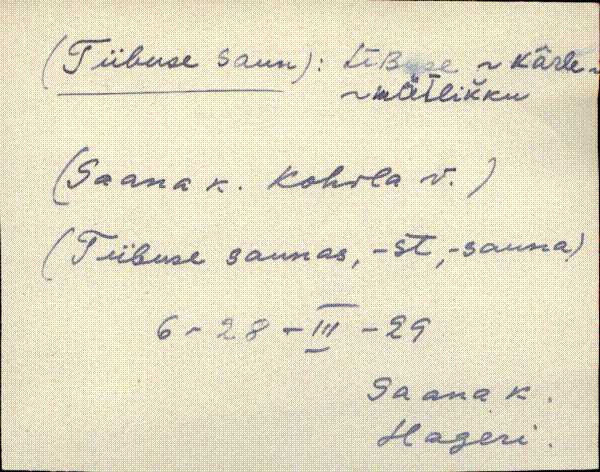 (Tiibuse saun): ~ Kärle~
~
(Saana k. Kohila v.)
(Tiibuse saunas, -st, -sauna)
6 - 28 - III - 29
Saana k.
Hageri.